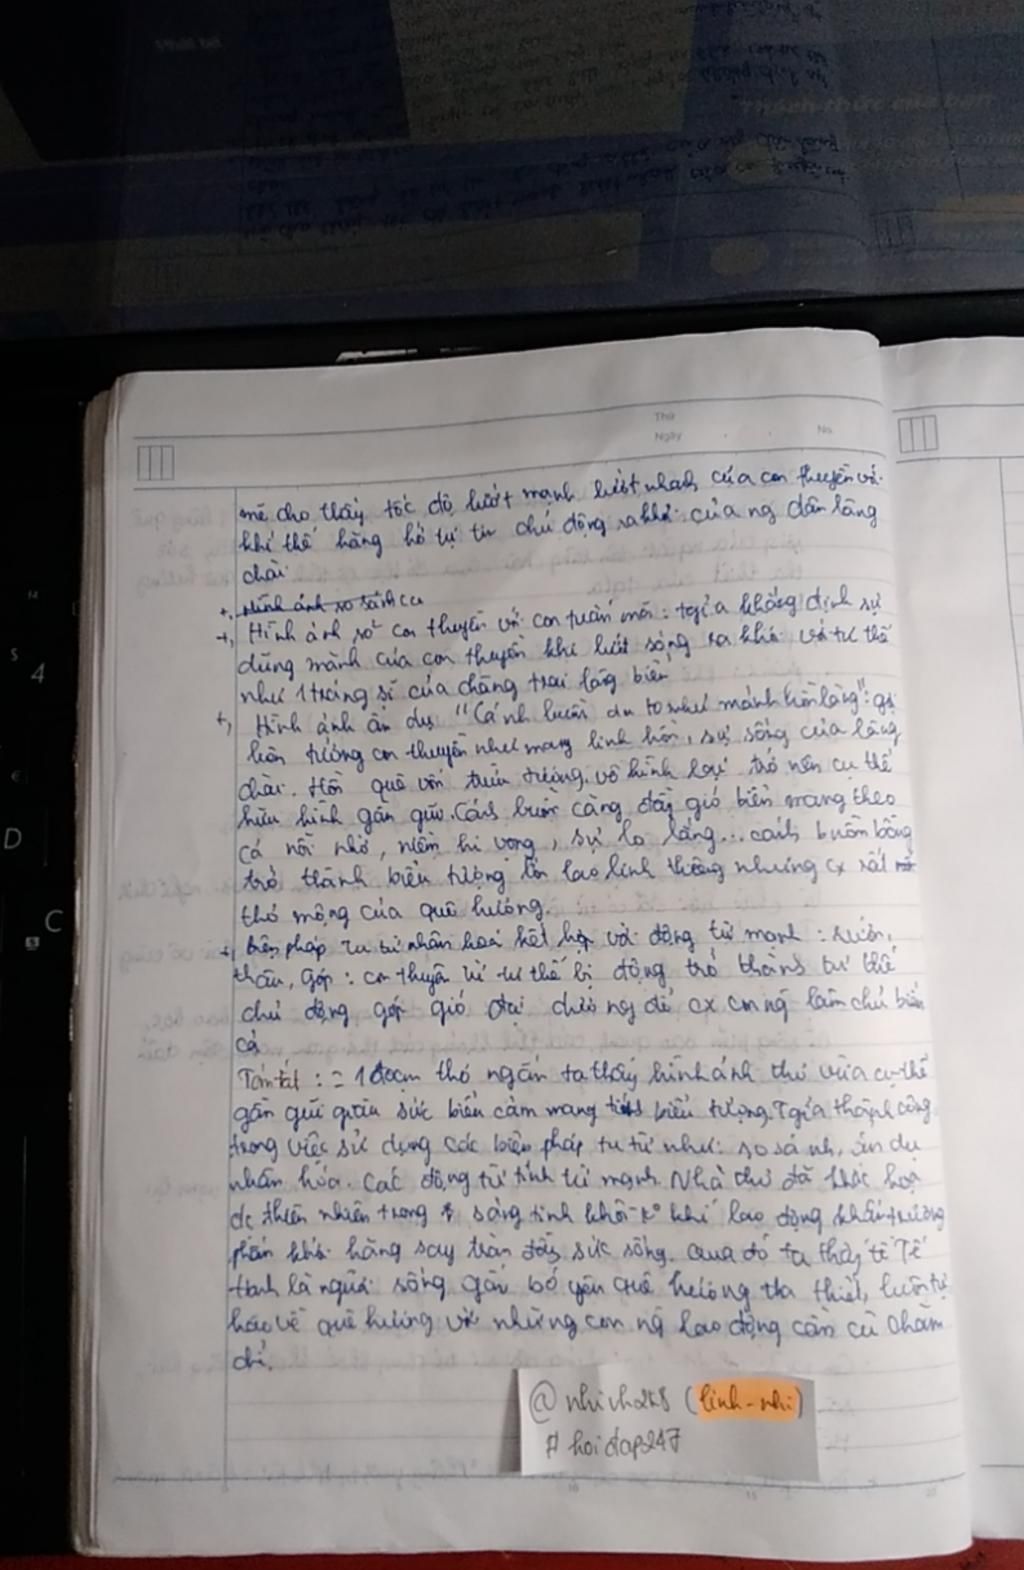 Thứ
Ngày No.
mẽ cho thấy tốc độ lướt mạnh lướt nhanh của con thuyền với
khí thế hăng hở tự tin chủ động ra khơi của ng dân làng
chài
+, Hình ảnh so sánh cu
+, Hình ảnh so² con thuyền với con tuấn mã: tgiả khẳng định sự
dũng mãnh của con thuyền khi lướt sóng ra khơi với tư thế
như 1 tráng sĩ của chàng trai làng biển
+, Hình ảnh ẩn dụ "Cánh buồm to như mảnh hồn làng": gợi
liên tưởng con thuyền như mang linh hồn, sự sống của làng
chài. Hồn quê vốn trừu tượng vô hình lại trở nên cụ thể
hữu hình gần gũi. Cánh buồm căng đầy gió biển mang theo
cả nỗi nhớ, niềm hi vọng, sự lo lắng... cánh buồm bỗng
trở thành biểu tượng lớn lao linh thiêng nhưng cx rất
thơ mộng của quê hương.
+, biện pháp tu từ nhân hoá kết hợp với động từ mạnh: rướn,
thâu, góp: con thuyền từ tư thế bị động trở thành tư thế
chủ động góp gió đại dương để cx con ng làm chủ biển
cả
Tóm tắt: = 1 đoạn thơ ngắn ta thấy hình ảnh thơ vừa cụ thể
gần gũi giàu sức biểu cảm mang tính biểu tượng. Tgiả thành công
trong việc sử dụng các biện pháp tu từ như: so sánh, ẩn dụ
nhân hóa. các động từ tính từ mạnh. Nhà thơ đã khắc hoạ
dc thiên nhiên trong sáng tinh khôi k° khí lao động khẩn trương
phấn khởi hăng say tràn đầy sức sống. Qua đó ta thấy tế Tế
Hanh là người sống gắn bó yêu quê hương tha thiết, luôn tự
hào về quê hương với những con ng lao động cần cù chăm
chỉ.
@ nhivh2k8 (linh-nhi)
# hoidap247